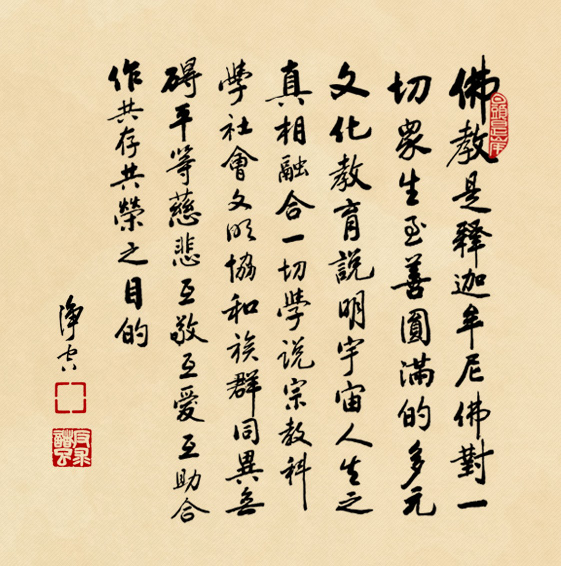 佛教是釋迦牟尼佛對一
切衆生至善圓滿的多元
文化教育說明宇宙人生之
真相融合一切學說宗教科
學社會文明協和族群同異無
礙平等慈悲互敬互愛互助合
作共存共榮之目的
淨空